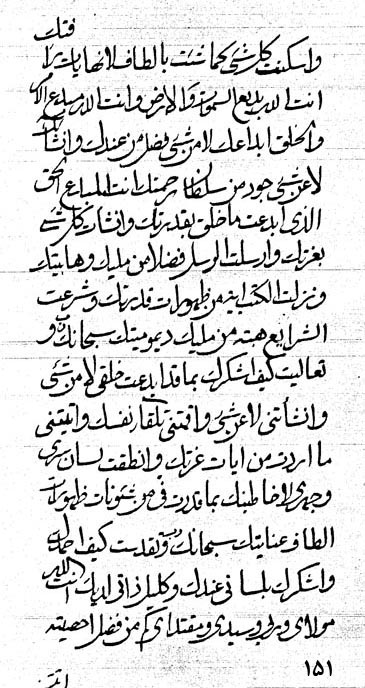 فتك
واسكنت كلشئ كما شئت بالطاف لانهايات
انت الله بديع السموات والارض وانت الله مبدع الامر
والخلق ابداعك لا من شئ بفضل من عندك وانشأ
لا عن شئ جود من سلطان رحمتك انت المبدع الحق
الذى ابدعت ما خلق بقدرتك وانشأت كلشئ
بعزتك وارسلت الرسل فضلا من مليك وهابيتك
ونزلت الكتب ابنية من ظهورات قدرتك وشرعت
الشرايع هبته من مليك ديموميتك سبحانك و
تعاليت كيف اشكرك بما قد ابدعت خلقى لا من شئ
وانشأتنى لا عن شئ واقمتنى تلقاء نفسك واتيتنى
ما اردت من ايات عزتك وانطقت لسان سرى
وجهرى لاخاطبنك بما قدرت فى من شئونات ظهورات
الطاف عنايتك سبحانك وتقدست كيف احمدك
واشكرك بلسانى عندك وكليل ذاتى لديك انت الله
مولاى وربى وسيدى ومقتداى كم من فضل احصيته
١٥١